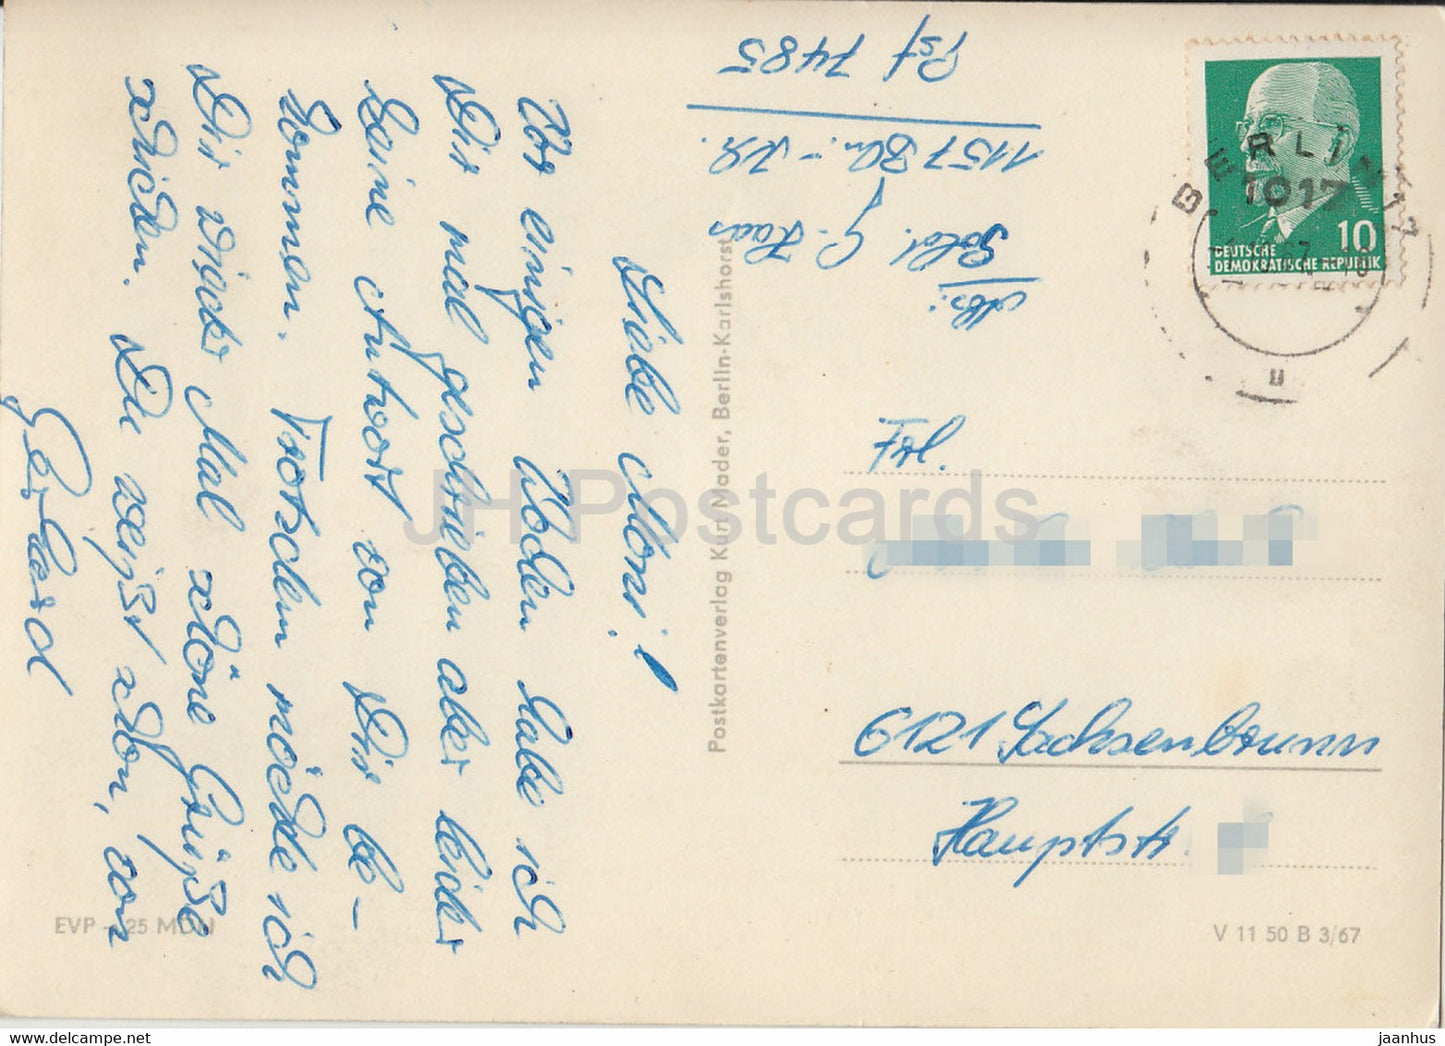 Liebe Moni!
Vor einigen Wochen habe ich
Dir mal geschrieben aber leider
keine Antwort von Dir be-
kommen. Trotzdem möchte ich
Dir dieses Mal schöne Grüße
schicken. Du weißt schon, von
Gerhard
Abs:
Sold. G. Haas
1157 Bln.-
Psf 7485
Postkartenverlag Kurt Mader, Berlin-Karlshorst
BERLIN 17
1017
10
DEUTSCHE
DEMOKRATISCHE REPUBLIK
u
Frl.
6121 Sachsenbrunn
Hauptstr.
EVP -,25 MDN
V 11 50 B 3/67
JH Postcards
www.delcampe.net
jaanhus